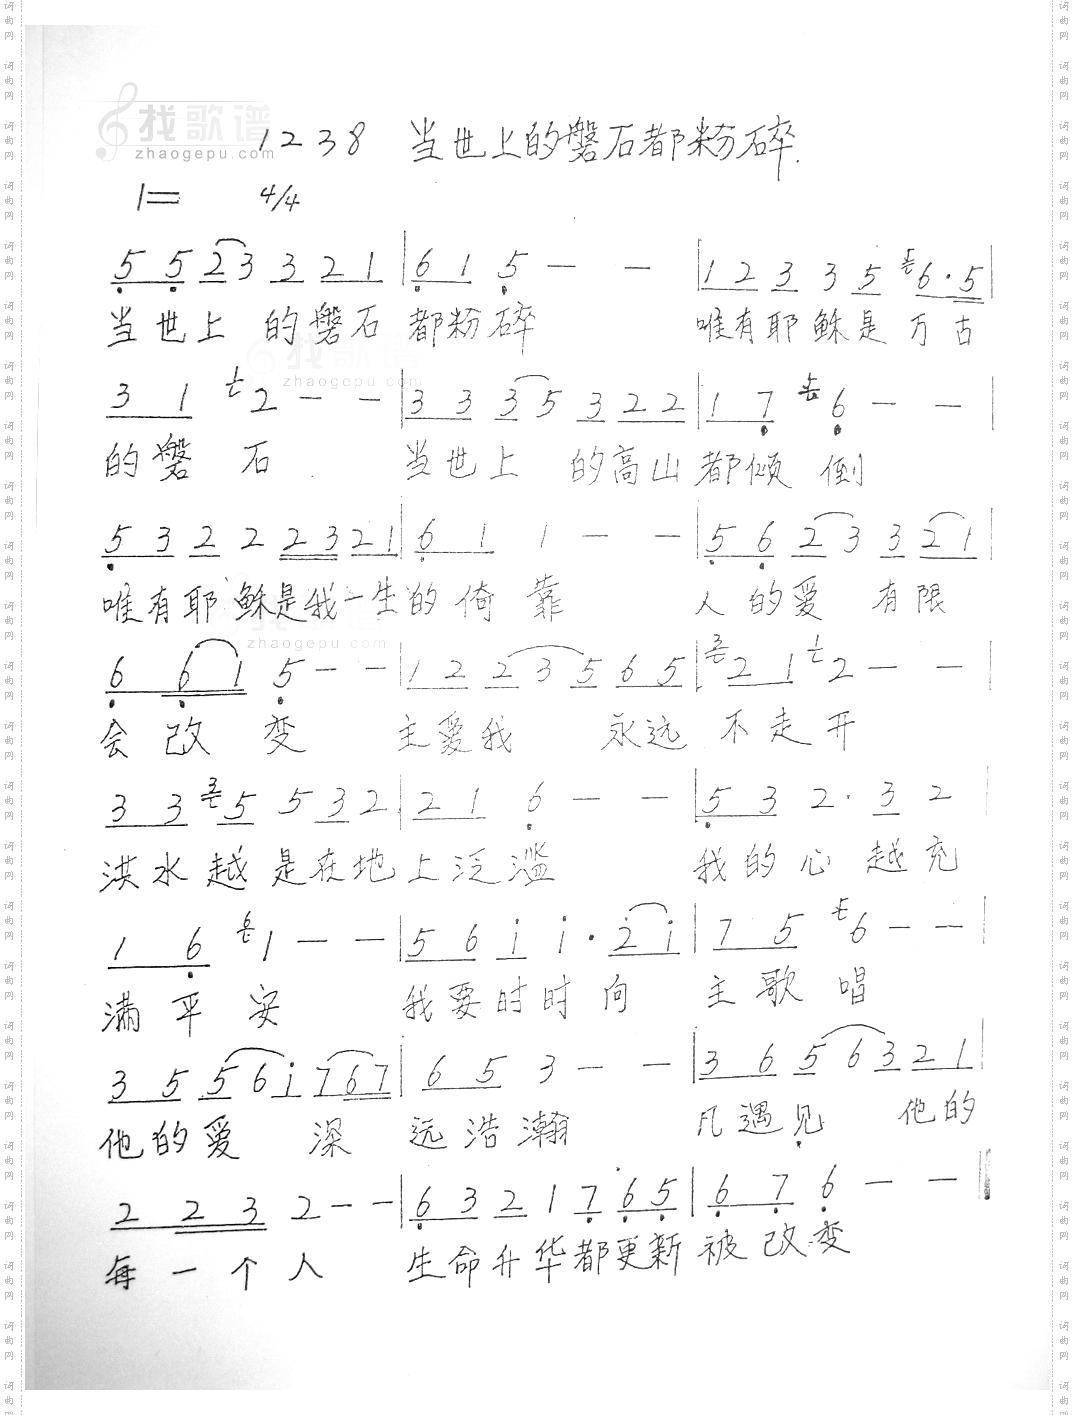 找歌谱
zhaogepu.com
1238 当世上的磐石都粉碎.
1= 4/4
5 5 2 3 3 2 1 | 6 1 5 — — | 1 2 3 3 5 6·5 |
当世上 的磐石 都粉碎 唯有耶稣是万古
3 1 2 — — | 3 3 3 5 3 2 2 | 1 7 6 — — |
的磐 石 当世上 的高山 都倾 倒
5 3 2 2 2 3 2 1 | 6 1 1 — — | 5 6 2 3 3 2 1 |
唯有耶稣是我一生的倚靠 人的爱 有限
6 6 1 5 — — | 1 2 2 3 5 6 5 | 2 1 2 — — |
会改 变 主爱我 永远 不走开
3 3 5 5 3 2 | 2 1 6 — — | 5 3 2· 3 2 |
洪水越是在地上泛滥 我的心越充
1 6 1 — — | 5 6 i i· 2 i | 7 5 6 — — |
满平安 我要时时向 主歌唱
3 5 5 6 i 7 6 7 | 6 5 3 — — | 3 6 5 6 3 2 1 |
他的爱 深 远浩瀚 凡遇见 他的
2 2 3 2 — — | 6 3 2 1 7 6 5 | 6 7 6 — — ‖
每一个人 生命升华都更新 被改变
找歌谱
zhaogepu.com
找歌谱
zhaogepu.com
词曲网